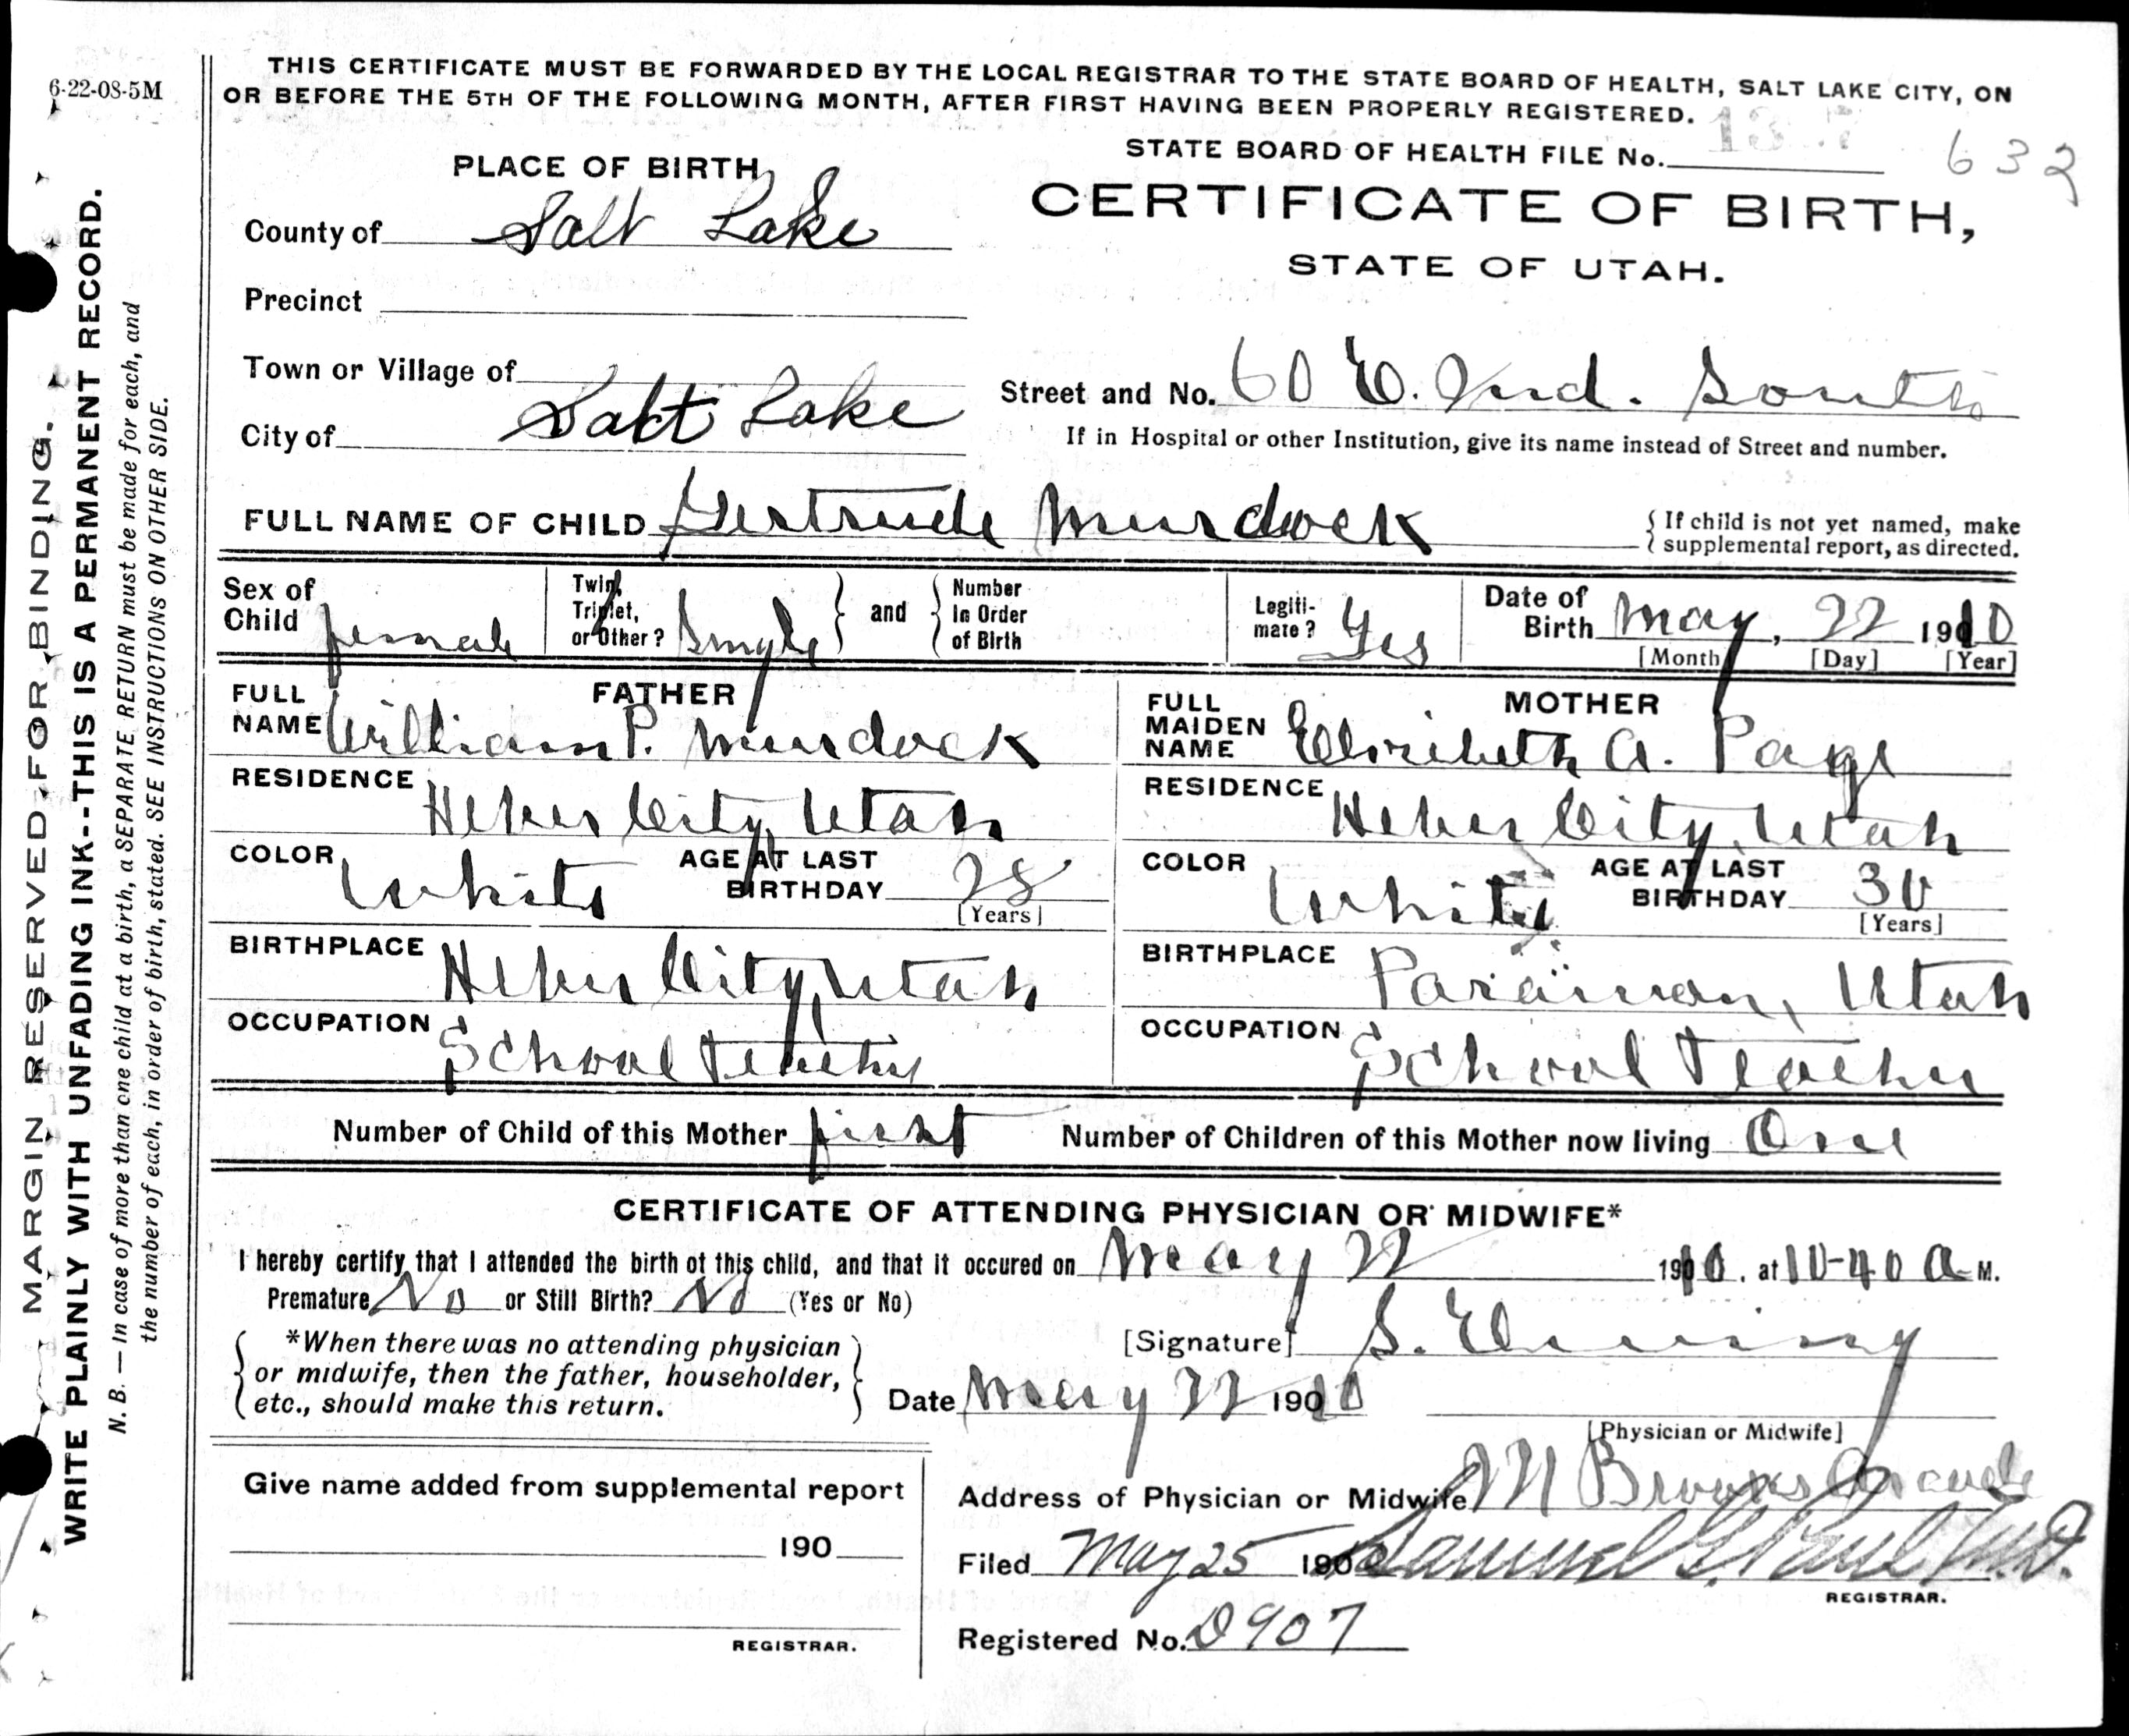 6-22-08-5M
THIS CERTIFICATE MUST BE FORWARDED BY THE LOCAL REGISTRAR TO THE STATE BOARD OF HEALTH, SALT LAKE CITY, ON
OR BEFORE THE 5TH OF THE FOLLOWING MONTH, AFTER FIRST HAVING BEEN PROPERLY REGISTERED.
MARGIN RESERVED FOR BINDING.
WRITE PLAINLY WITH UNFADING INK--THIS IS A PERMANENT RECORD.
N. B. — In case of more than one child at a birth, a SEPARATE RETURN must be made for each, and
the number of each, in order of birth, stated. SEE INSTRUCTIONS ON OTHER SIDE.
STATE BOARD OF HEALTH FILE No. 632
PLACE OF BIRTH
CERTIFICATE OF BIRTH,
STATE OF UTAH.
County of Salt Lake
Precinct
Town or Village of
Street and No. 60 E. 2nd. South
City of Salt Lake
If in Hospital or other Institution, give its name instead of Street and number.
FULL NAME OF CHILD Gertrude Murdock { If child is not yet named, make
supplemental report, as directed.
Sex of Child female
Twin, Triplet, or Other? Single } and { Number In Order of Birth
Legitimate? Yes
Date of Birth May, 22 1910
[Month] [Day] [Year]
FATHER
FULL NAME William P. Murdock
RESIDENCE Heber City, Utah
COLOR White AGE AT LAST BIRTHDAY 28
[Years]
BIRTHPLACE Heber City, Utah
OCCUPATION School Teacher
MOTHER
FULL MAIDEN NAME Elizibeth A. Page
RESIDENCE Heber City, Utah
COLOR White AGE AT LAST BIRTHDAY 30
[Years]
BIRTHPLACE Utah
OCCUPATION School Teacher
Number of Child of this Mother first Number of Children of this Mother now living One
CERTIFICATE OF ATTENDING PHYSICIAN OR MIDWIFE*
I hereby certify that I attended the birth of this child, and that it occured on May 22 1910. at 10-40 A M.
Premature No or Still Birth? No (Yes or No)
{ *When there was no attending physician
or midwife, then the father, householder,
etc., should make this return. }
[Signature] S.
Date May 22 1910
[Physician or Midwife]
Give name added from supplemental report
190
REGISTRAR.
Address of Physician or Midwife Brooks Arcade
Filed May 25 190 Samuel G. Paul M.D.
REGISTRAR.
Registered No. D907